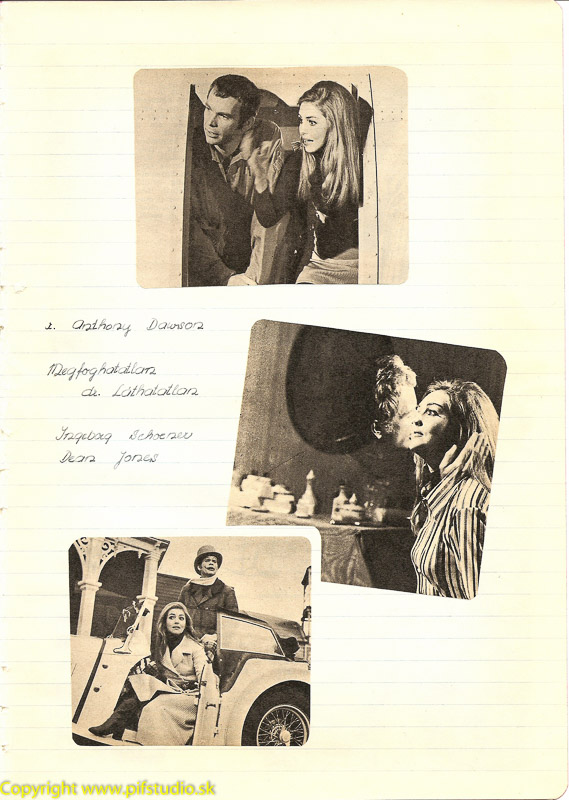 r. Anthony Dawson
Megfoghatatlan
dr. Láthatatlan
Ingeborg Schoener
Dean Jones
Copyright www.pifstudio.sk